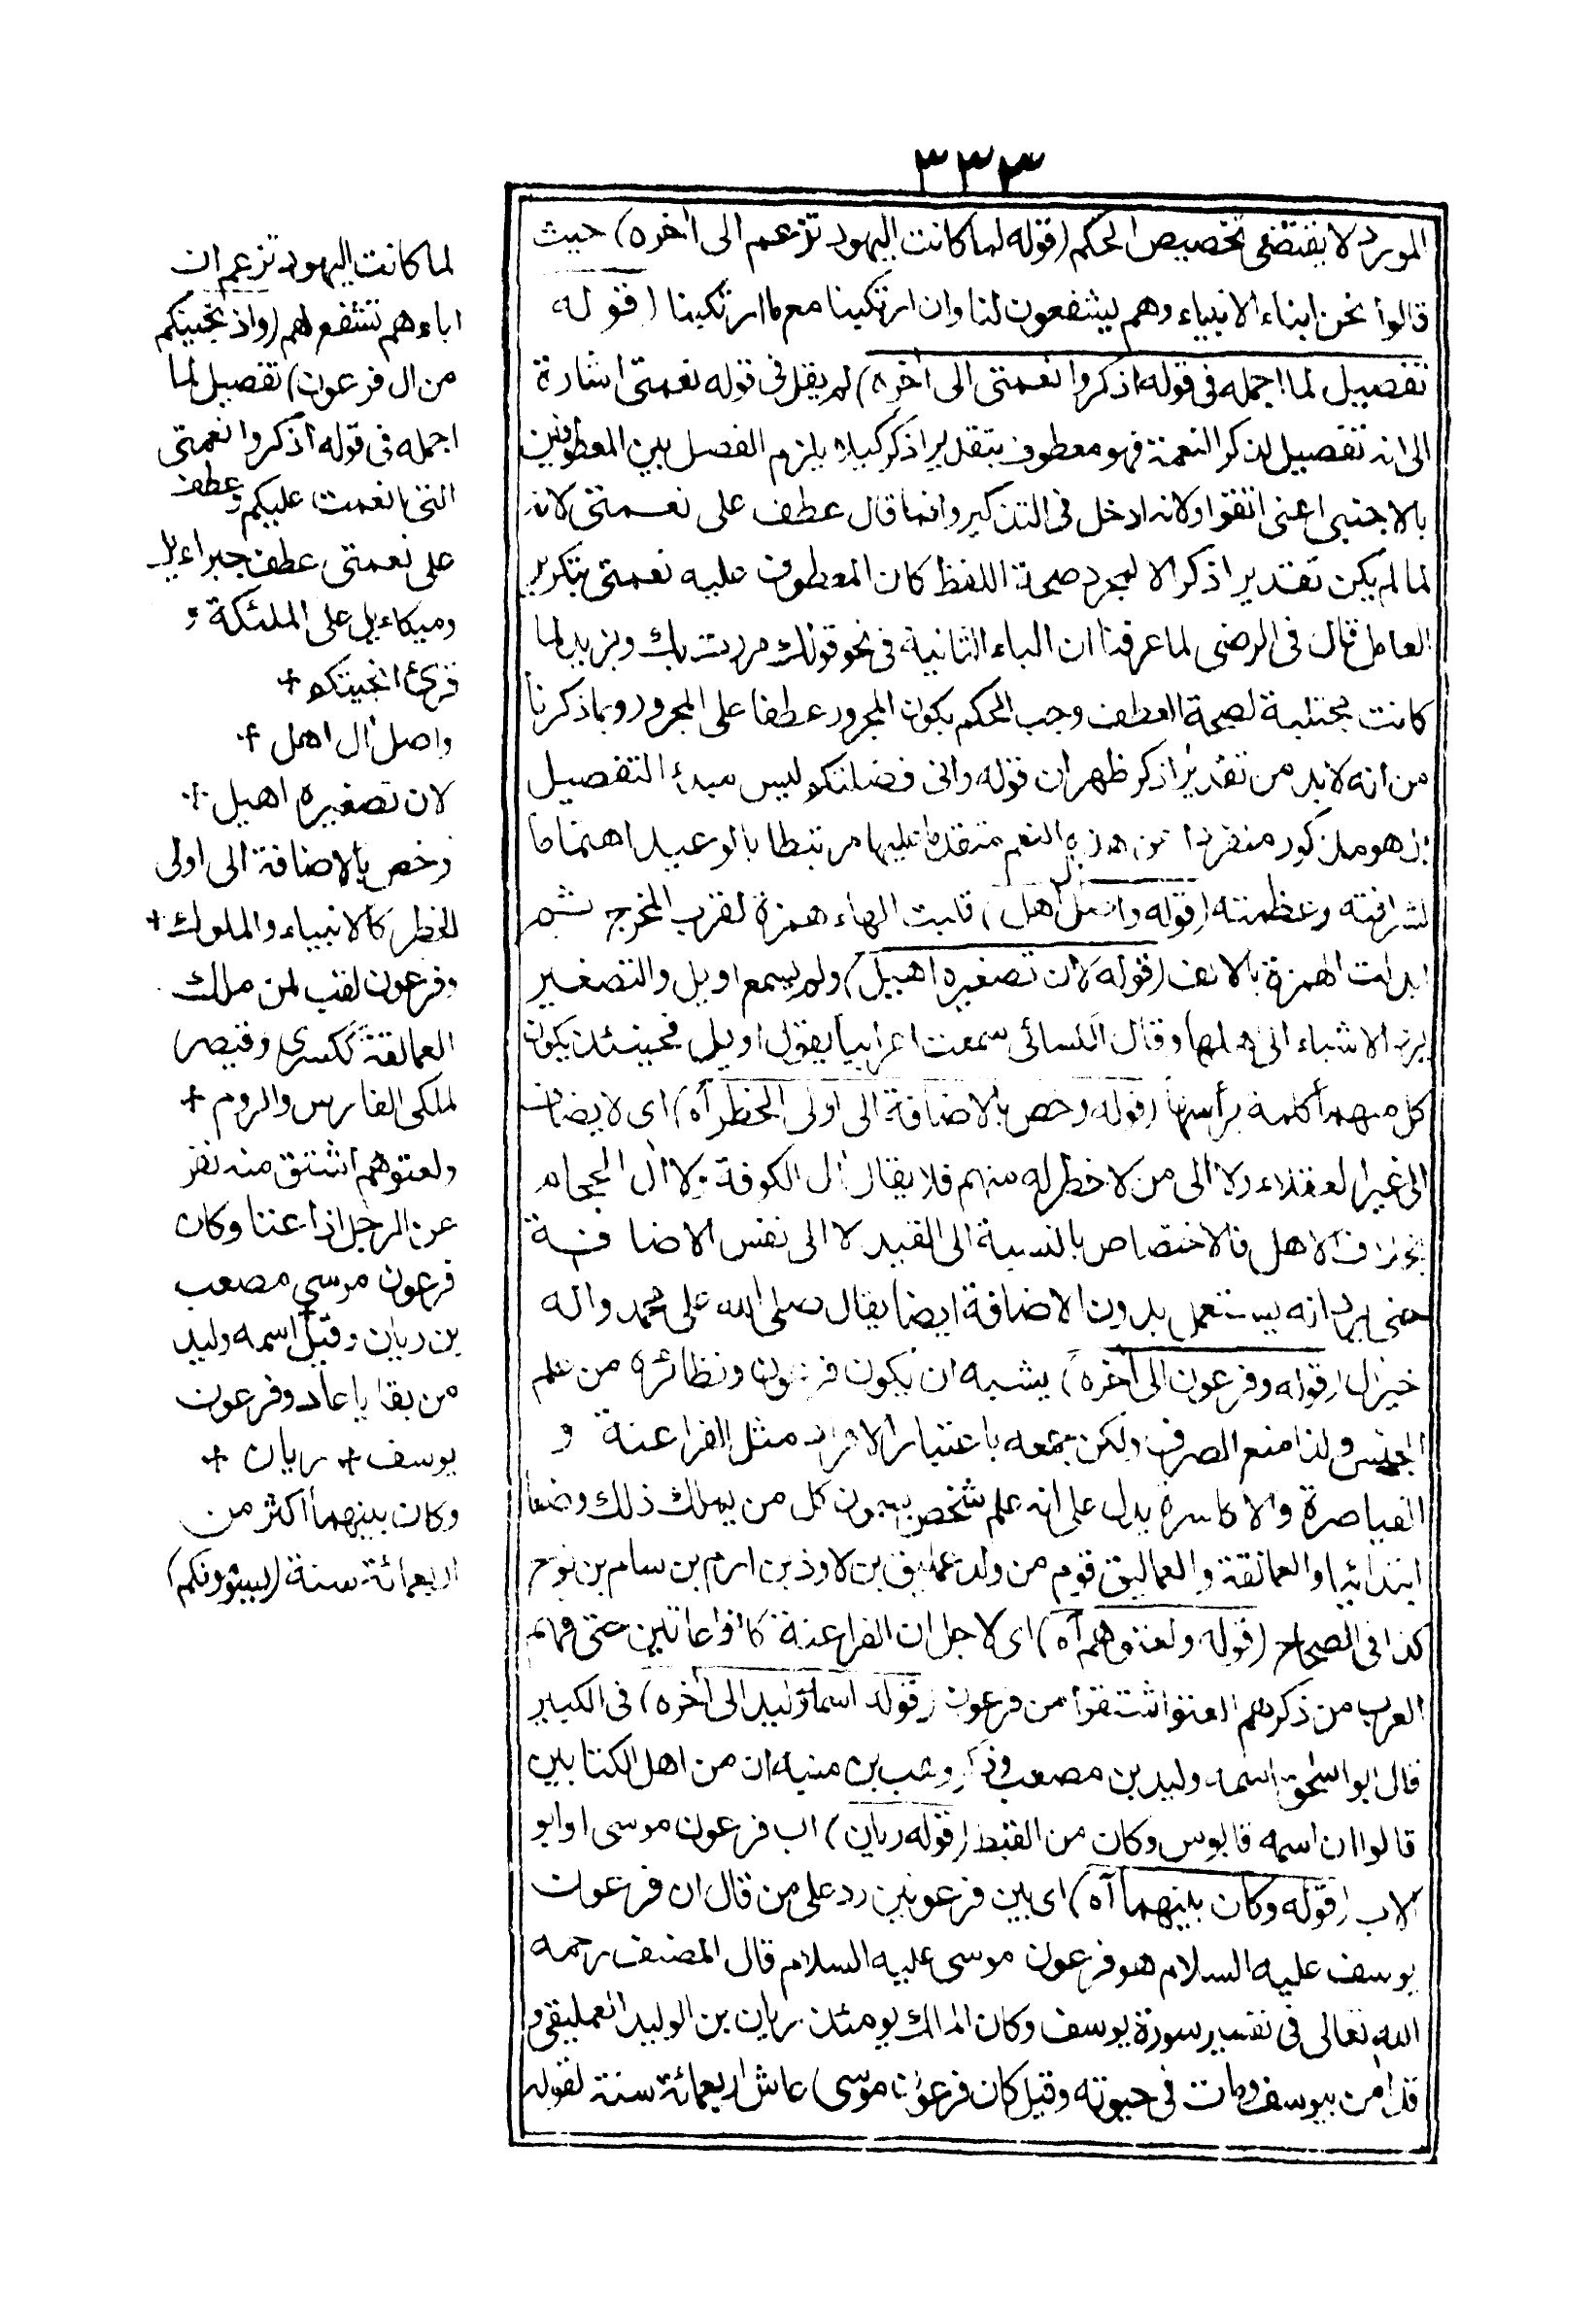 ٣٣٣
المورد لا يقتضى تخصيص الحكم (قوله لما كانت اليهود تزعم الى اخره) حيث
قالوا نحن ابناء الانبياء وهم يشفعون لنا وان ارتكبنا مع ما ارتكبنا (قوله
تفصيل لما اجمله فى قوله اذكروا نعمتى الى اخره) لم يقل فى قوله نعمتى اشارة
الى انه تفصيل لذكر النعمة فهو معطوف بتقدير اذكر كيلا يلزم الفصل بين المعطوفين
بالاجنبى اعنى اتقوا ولانه ادخل فى التذكير وانما قال عطف على نعمتى لانه
لما لم يكن تقدير اذكر الا لمجرد صحة اللفظ كان المعطوف عليه نعمتى بتكرير
العامل قال فى الرضى لما عرفنا ان الباء الثانية فى نحو قولك مررت بك وبزيد لما
كانت مجتلبة لصحة العطف وجب الحكم بكون المجرور عطفا على المجرور وبما ذكرنا
من انه لابد من تقدير اذكر ظهر ان قوله وانى فضلتكم ليس مبدء التفصيل
بل هو مذكور منفردا عن هذه النعم متقدما عليها مرتبطا بالوعيد اهتماما
لشرافته وعظمته (قوله واصل اهل) قلبت الهاء همزة لقرب المخرج ثم
ابدلت الهمزة بالالف (قوله لان تصغيره اهيل) ولم يسمع اويل والتصغير
يرد الاشياء الى اصلها وقال الكسائى سمعت اعرابيا يقول اويل فحينئذ يكون
كل منهما كلمة برأسها (قوله وخص بالاضافة الى اولى الخطر آه) اى لا يضاف
الى غير العقلاء ولا الى من لا خطر له منهم فلا يقال ال الكوفة ولا ال الحجام
بخلاف الاهل فالاختصاص بالنسبة الى القيد لا الى نفس الاضافة
حتى يرد انه يستعمل بدون الاضافة ايضا يقال صلى الله على محمد واله
خير ال (قوله وفرعون الى اخره) يشبه ان يكون فرعون ونظائره من علم
الجنس ولذا منع الصرف ولكن جمعه باعتبار الافراد مثل الفراعنة و
القياصرة والاكاسرة يدل على انه علم شخص يسمون كل من يملك ذلك وضعا
ابتدائيا والعمالقة والعماليق قوم من ولد عمليق بن لاوذ بن ارم بن سام بن نوح
كذا فى الصحاح (قوله ولعتوهم آه) اى لاجل ان الفراعنة كانوا عاتين حتى فهم
العرب من ذكرهم العتو اشتقوا من فرعون (قوله اسمه وليد الى اخره) فى الكبير
قال ابو اسحق اسمه وليد بن مصعب وذكر وهب بن منبه ان من اهل الكتابين
قالوا ان اسمه قابوس وكان من القبط (قوله ريان) اب فرعون موسى او ابو
الاب (قوله وكان بينهما آه) اى بين فرعونين رد على من قال ان فرعون
يوسف عليه السلام هو فرعون موسى عليه السلام قال المصنف رحمه
الله تعالى فى تفسير سورة يوسف وكان الملك يومئذ ريان بن الوليد العمليقى و
قد امن بيوسف ومات فى حيوته وقيل كان فرعون موسى عاش اربعمائة سنة لقوله
لما كانت اليهود تزعم ان
اباءهم تشفع لهم (واذ نجيناكم
من ال فرعون) تفصيل لما
اجمله فى قوله اذكروا نعمتى
التى انعمت عليكم وعطف
على نعمتى عطف جبراءيل
وميكاءيل على الملئكة و
قرئ انجيتكم +
واصل ال اهل +
لان تصغيره اهيل +
وخص بالاضافة الى اولى
الخطر كالانبياء والملوك +
وفرعون لقب لمن ملك
العمالقة ككسرى وقيصر
لملكى الفارس والروم +
ولعتوهم اشتق منه تفر
عن الرجل اذا عتا وكان
فرعون موسى مصعب
بن ريان وقيل اسمه وليد
من بقايا عاد وفرعون
يوسف + ريان +
وكان بينهما اكثر من
اربعمائة سنة (يسومونكم)